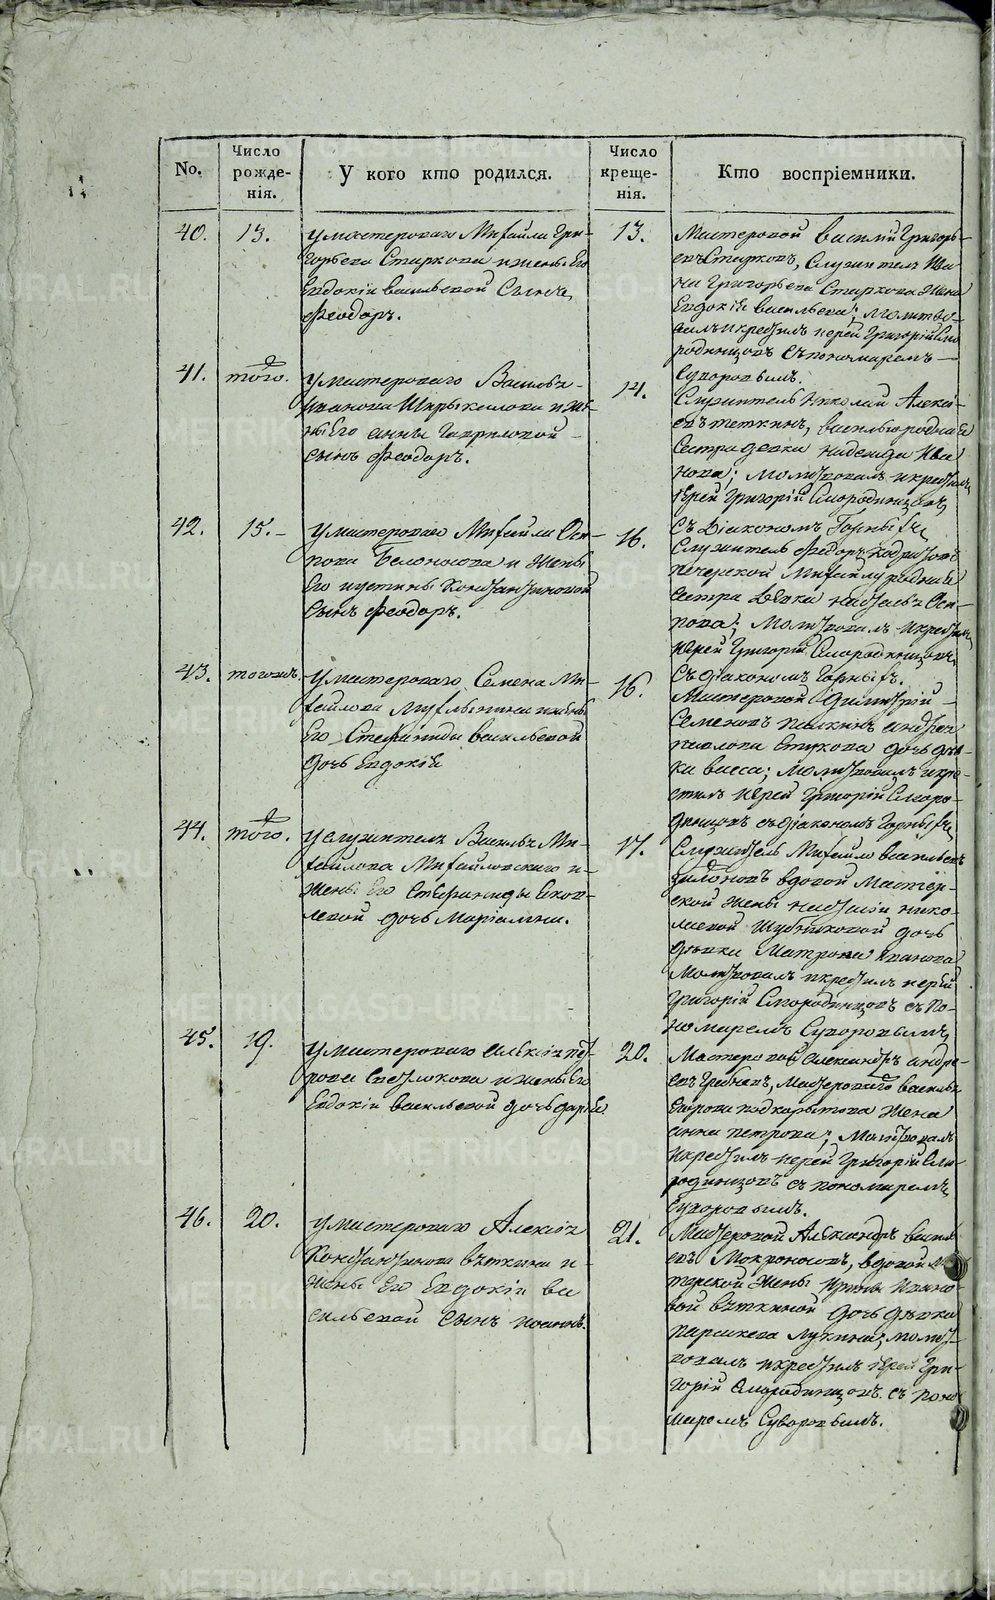 No.
Число рожде-нія.
У кого кто родился.
Число креще-нія.
Кто воспріемники.
40.
13.
у мастероваго Михайла Гри-
горьева Старкова и жены Его
Евдокіи васильевой Сынъ
Феодоръ.
13.
Мастеровой василий Григорь-
евъ Старковъ, Служителя Ива-
на Григорьева Старкова Жена
Евдокія васильева; молитво-
валъ и крестилъ иерей Григорій Смо
родинцовъ съ пономаремъ
Суворовымъ.
41.
того.
у мастероваго Василья
Иванова и же-
ны Его анны Гавриловой
сынъ Феодоръ.
14.
Служитель Николай Алексѣ-
евъ теткинъ, василья родная
Сестра девка надежда Ива
нова; молитвовалъ и крестилъ
Иерей Григорій Смородинцовъ
съ Діакономъ Горныхъ
42.
15.
у мастероваго Михайла Оси-
пова Белоносова и Жены
Его иустины Констянтиновой
Сынъ Феодоръ.
16.
Служитель Федоръ
Михайлу родная
Сестра Девка Оси-
пова; Молитвовалъ и крестилъ
Иерей Григорій Смородинцовъ
съ діакономъ Горныхъ.
43.
тогожъ.
у мастероваго Семена Ми-
хайлова и жены
Его Стефаниды васильевой
дочь Евдокія
16.
Мастеровой Димитрій
Семеновъ андрея
павлова дочь дѣв-
ка васса; Молитвовалъ и кре-
стилъ Иерей Григорій Сморо-
динцовъ съ діакономъ Горныхъ
44.
того.
у служителя Василья Ми-
хайлова Михайловскаго и
жены Его Стефаниды Яков-
левой дочь Маріамна.
17.
Служитель Михайло васильевъ
вдовой Мастер-
ской Жены настасіи нико-
лаевой дочь
дѣвка Матрона Иванова
Молитвовалъ и крестилъ иерей
Григорій Смородинцовъ съ По-
номаремъ Суворовымъ
45.
19.
у мастероваго алексія пет-
рова и жены Его
Евдокіи васильевой дочь дарія.
20.
Мастеровой александръ андре
евъ Гребневъ, Мастероваго василья
Егорова подкорытова Жена
анна петрова; Молитвовалъ
и крестилъ иерей Григорій Смо-
родинцовъ съ пономаремъ
Суворовымъ.
46.
20.
у мастероваго Алексія
Констянтинова вяткина и
жены Его Евдокіи ва
сильевой сынъ иоаннъ.
21.
Мастеровой Александръ василь
евъ Мокроносовъ, вдовой мас
терской Жены ирины Ивано-
вой вяткиной дочь дѣвка
параскева Лукина; молит-
вовалъ и крестилъ іерей Гри-
горій Смородинцовъ съ поно
маремъ Суворовымъ.
METRIKI.GASO-URAL.RU